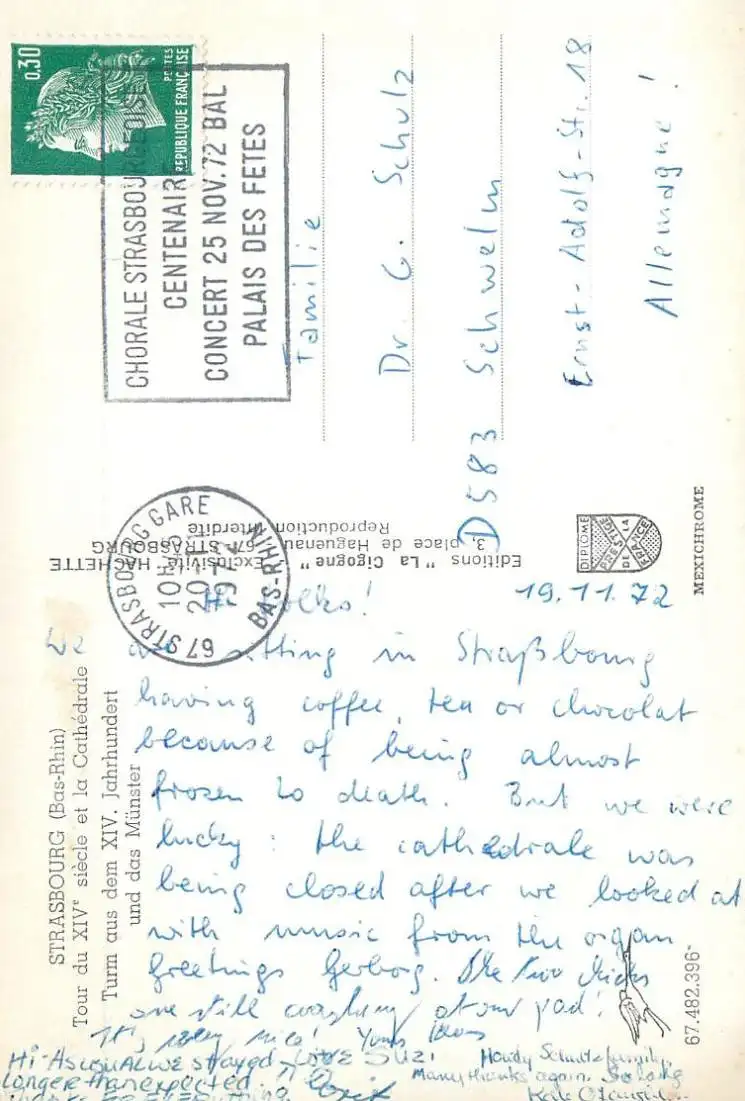 0,30
POSTES
REPUBLIQUE FRANÇAISE
CHORALE STRASBOURGEOISE
CENTENAIRE
CONCERT 25 NOV. 72 BAL
PALAIS DES FETES
Familie
Dr. G. Schulz
D583 Schwelm
Ernst-Adolf-Str. 18
Allemagne!
67 STRASBOURG GARE
10H
20-11
BAS-RHIN
Editions "La Cigogne"
3, place de Haguenau - 67-STRASBOURG
Exclusivité HACHETTE
Reproduction interdite
DIPLOME
PRESTIGE
DE LA
FRANCE
MEXICHROME
STRASBOURG (Bas-Rhin)
Tour du XIVe siècle et la Cathédrale
Turm aus dem XIV. Jahrhundert
und das Münster
67.482.396-
19.11.72
Hi folks!
We are sitting in Straßbourg
having coffee, tea or chocolat
because of being almost
frozen to death. But we were
lucky: the cathedrale was
being closed after we looked at
with music from the organ
Greetings Gerborg. The two chicks
are still crashing at our pad!
It's very nice! Yours
Hi - As usual we stayed
longer than expected.
Love Suzi
Howdy Schulz family,
Many thanks again. So long